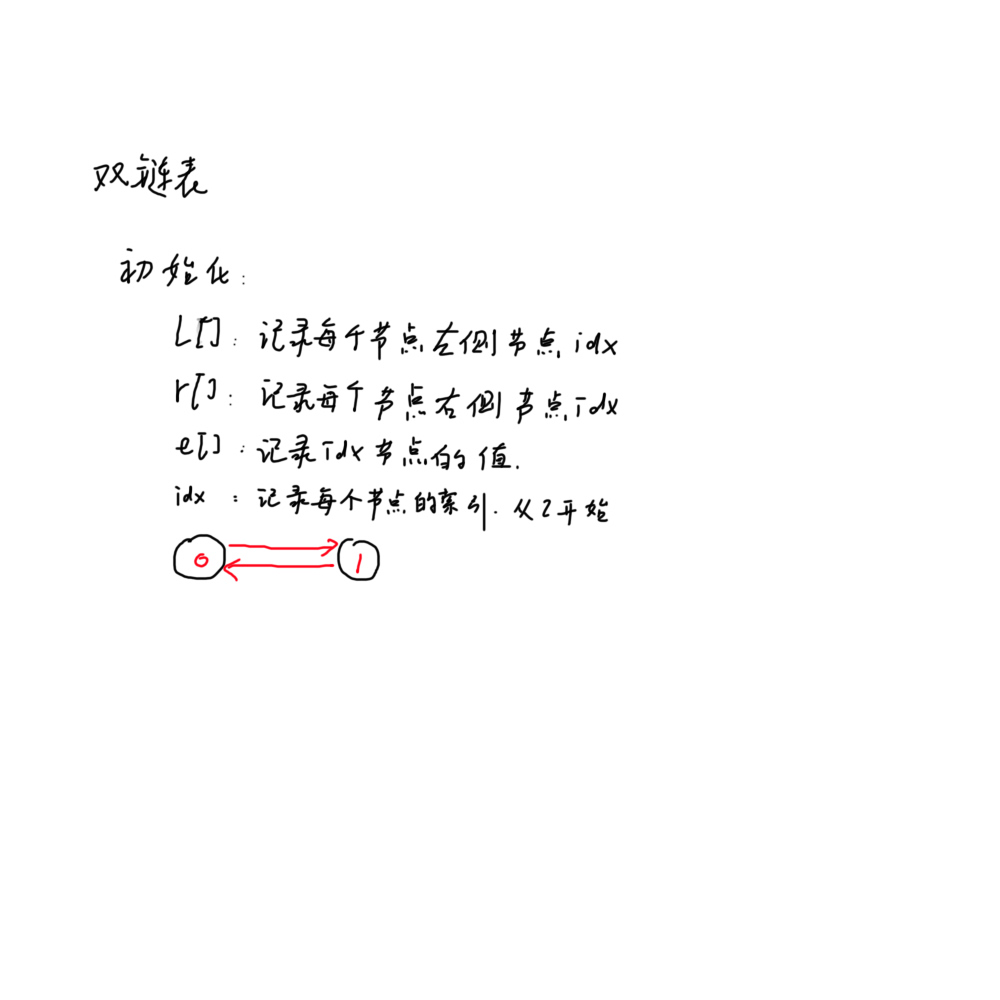 双链表
初始化:
L[]: 记录每个节点左侧节点idx
r[]: 记录每个节点右侧节点idx
e[]: 记录idx节点的值.
idx : 记录每个节点的索引. 从2开始
0 1